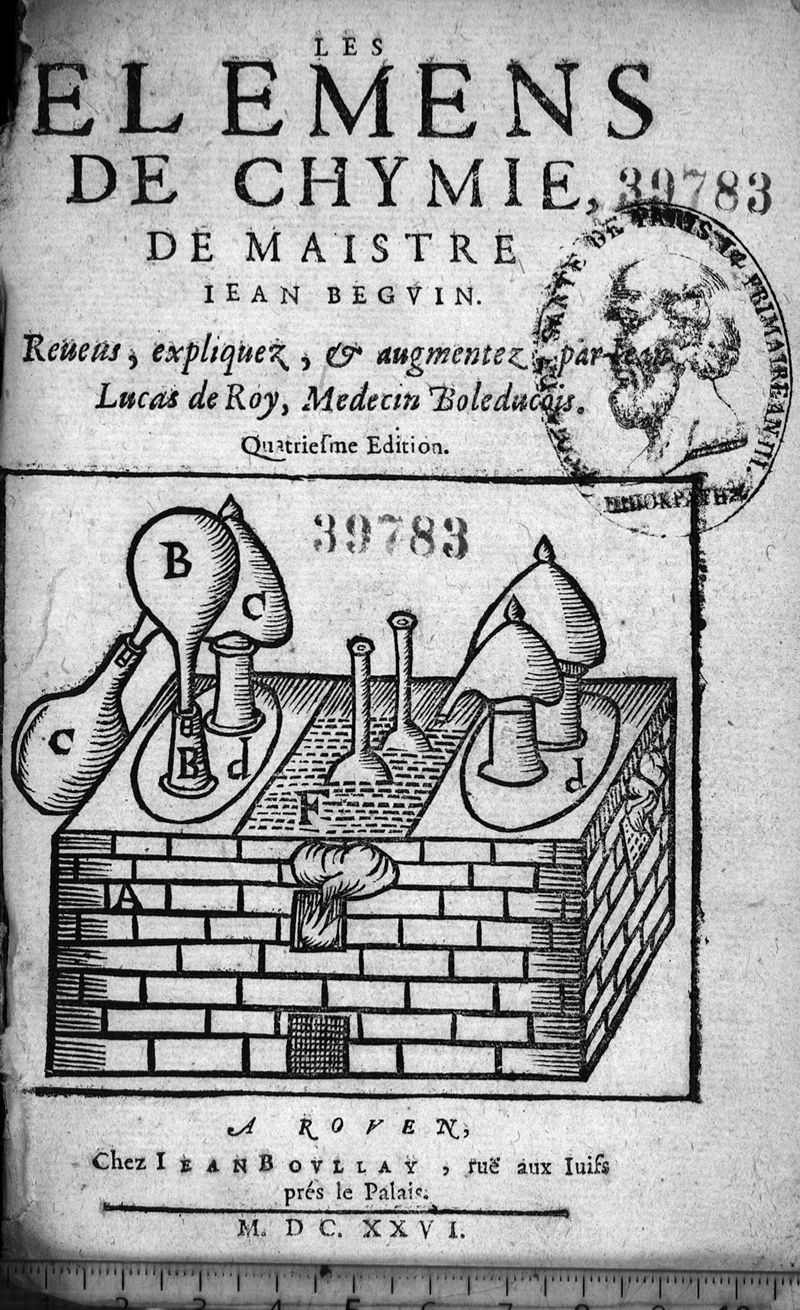 LES
ELEMENS
DE CHYMIE,
39783
DE MAISTRE
IEAN BEGVIN.
Reueus, expliquez, & augmentez, par Iean
Lucas de Roy, Medecin Boleducois.
Quatriesme Edition.
DE PARIS
39783
B
C
C
B
d
F
d
A
A ROVEN,
Chez IEAN BOVLLAY, ruë aux Iuifs
prés le Palais.
M. DC. XXVI.
2 3 4 5 6 7 8